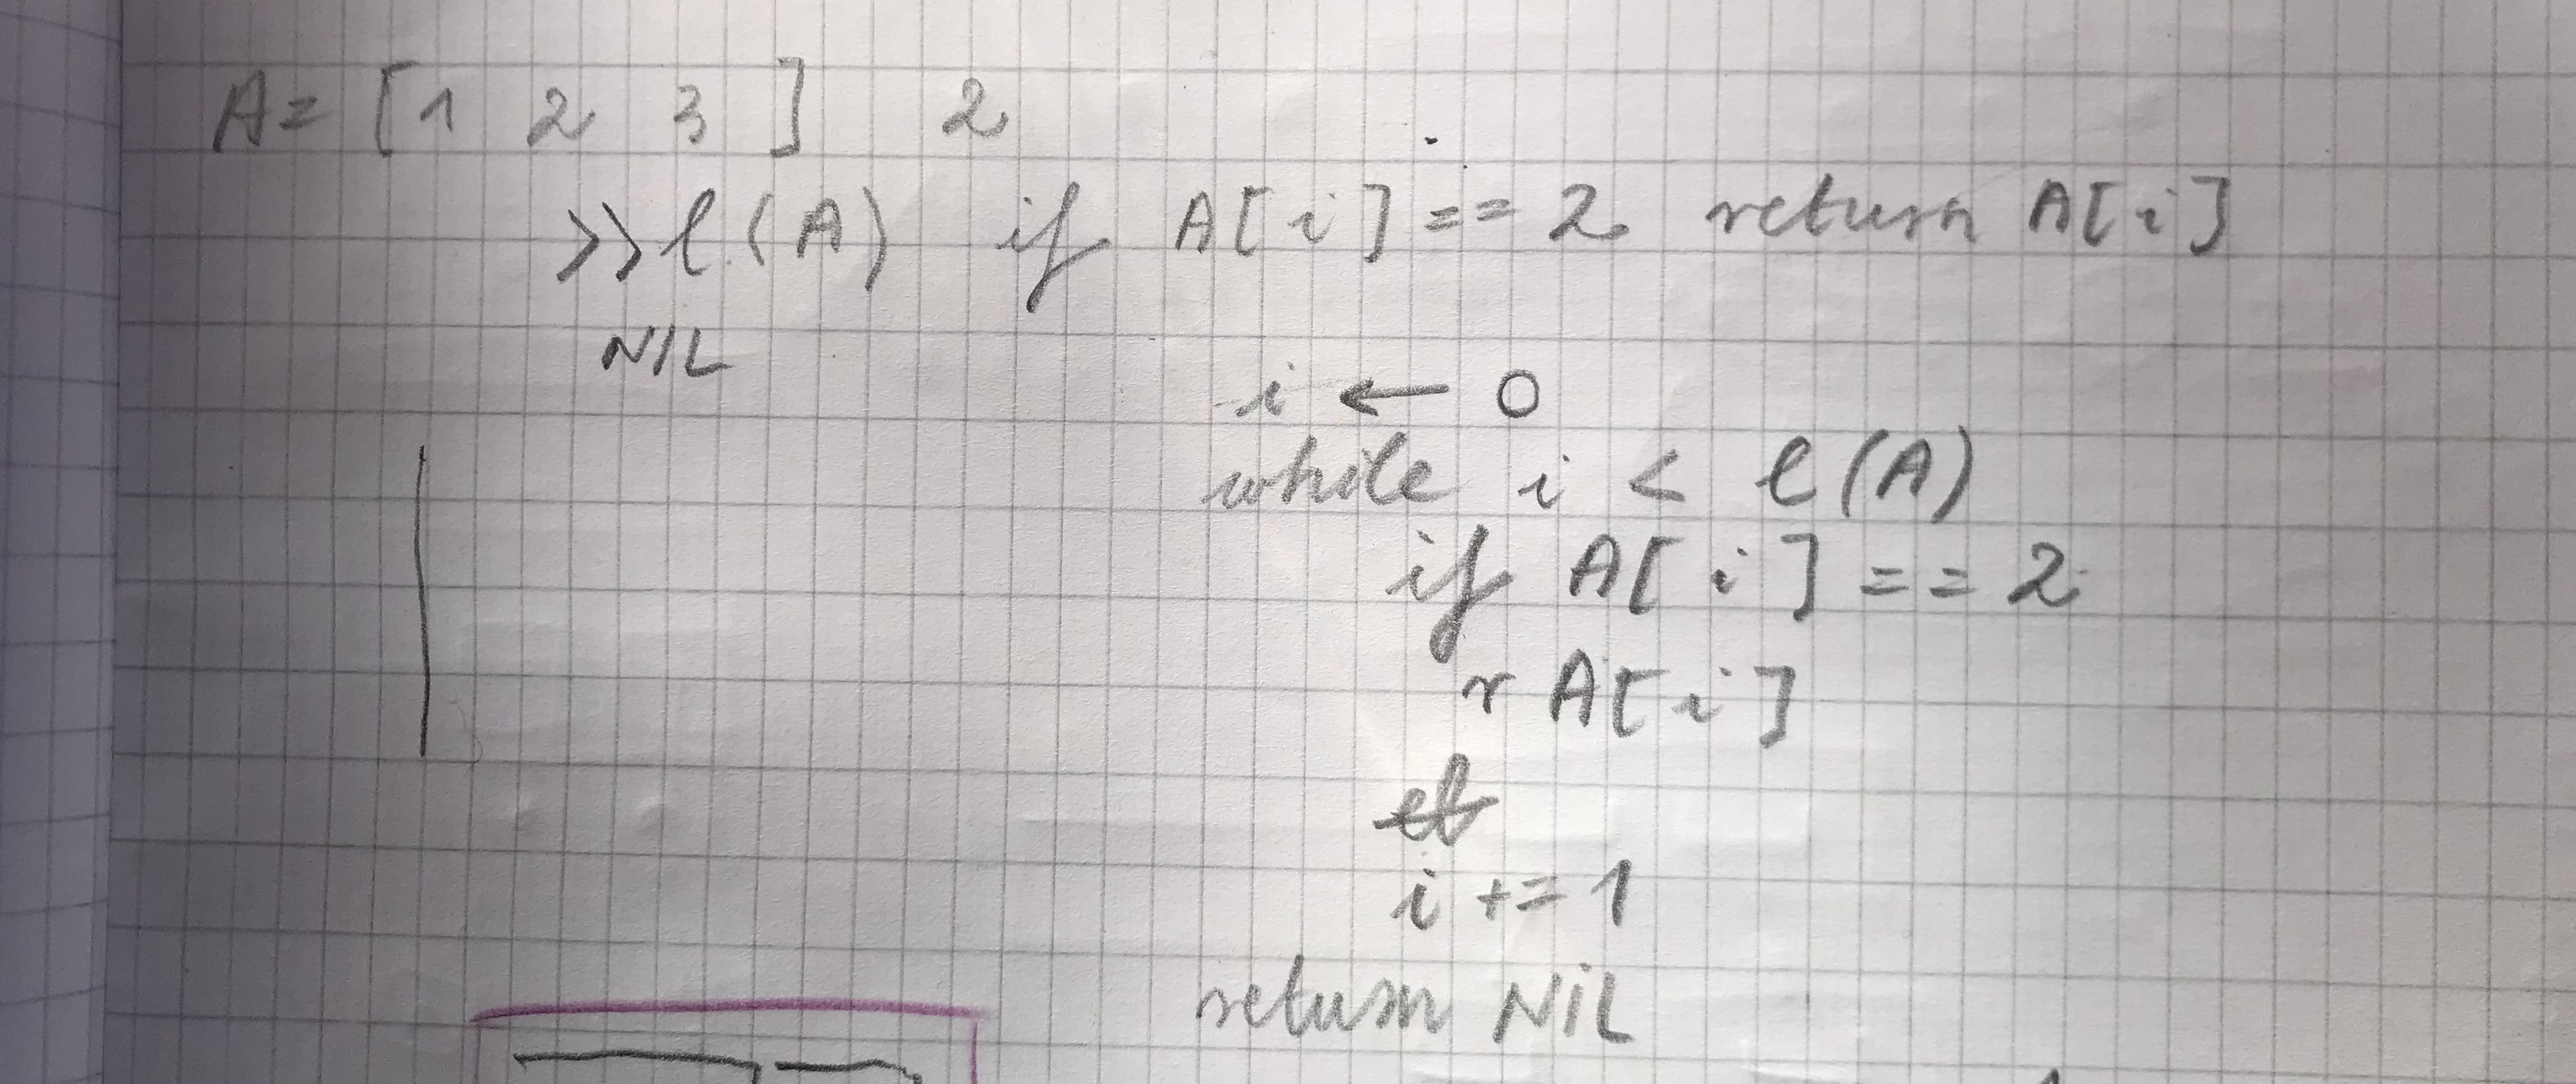 A= [ 1 2 3 ] 2
>> l(A) if A[i] == 2 return A[i]
NIL
i ← 0
while i < l(A)
if A[i] == 2
r A[i]
i += 1
return NIL